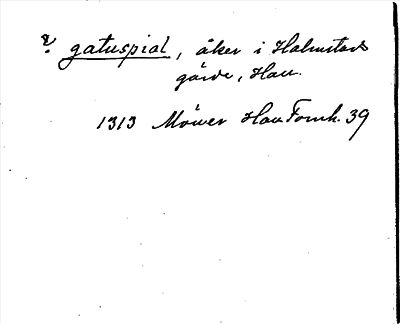 ? gatuspial, åker i Halmstads
gärde, Hall.
1313 Möwer Hall Fornh. 39